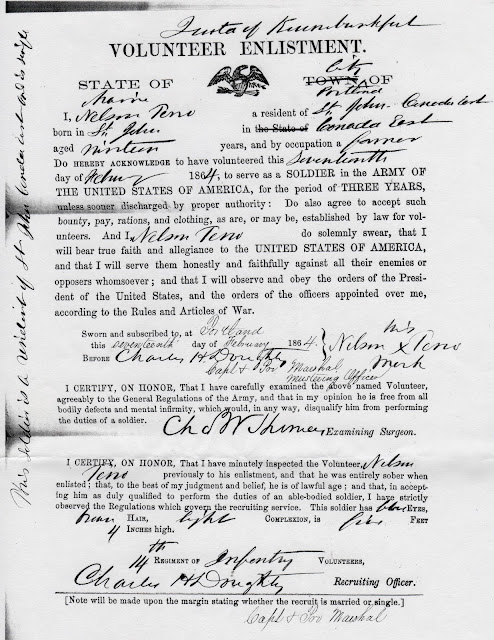 Quota of Kennebunkport
VOLUNTEER ENLISTMENT.
STATE OF TOWN OF
City
Maine Portland
I, Nelson Tero a resident of St. John - Canada East
born in St. John in the State of Canada East
aged nineteen years, and by occupation a farmer
DO HEREBY ACKNOWLEDGE to have volunteered this seventeenth
day of Feb'y 1864, to serve as a SOLDIER in the ARMY OF
THE UNITED STATES OF AMERICA, for the period of THREE YEARS,
unless sooner discharged by proper authority: Do also agree to accept such
bounty, pay, rations, and clothing, as are, or may be, established by law for vol-
unteers. And I, Nelson Tero do solemnly swear, that I
will bear true faith and allegiance to the UNITED STATES OF AMERICA,
and that I will serve them honestly and faithfully against all their enemies or
opposers whomsoever; and that I will observe and obey the orders of the Presi-
dent of the United States, and the orders of the officers appointed over me,
according to the Rules and Articles of War.
Sworn and subscribed to, at Portland
this seventeenth day of February 1864.
his
Nelson X Tero
mark
BEFORE Charles H Doughty
Capt & Pro Marshal
Mustering Officer
I CERTIFY, ON HONOR, That I have carefully examined the above named Volunteer,
agreeably to the General Regulations of the Army, and that in my opinion he is free from all
bodily defects and mental infirmity, which would, in any way, disqualify him from performing
the duties of a soldier.
Examining Surgeon.
I CERTIFY, ON HONOR, That I have minutely inspected the Volunteer, Nelson
Tero previously to his enlistment, and that he was entirely sober when
enlisted; that, to the best of my judgment and belief, he is of lawful age; and that, in accept-
ing him as duly qualified to perform the duties of an able-bodied soldier, I have strictly
observed the Regulations which govern the recruiting service. This soldier has blue EYES,
brown HAIR, light COMPLEXION, is five FEET
4 INCHES high.
14th REGIMENT OF Infantry VOLUNTEERS,
Charles H Doughty Recruiting Officer.
[Note will be made upon the margin stating whether the recruit is married or single.]
Capt & Pro Marshal
This soldier is a resident of St John Canada East and is single